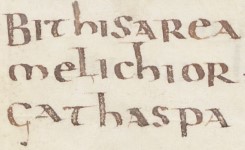 BIThISAREA
meLIchIOR.
GAThASPA